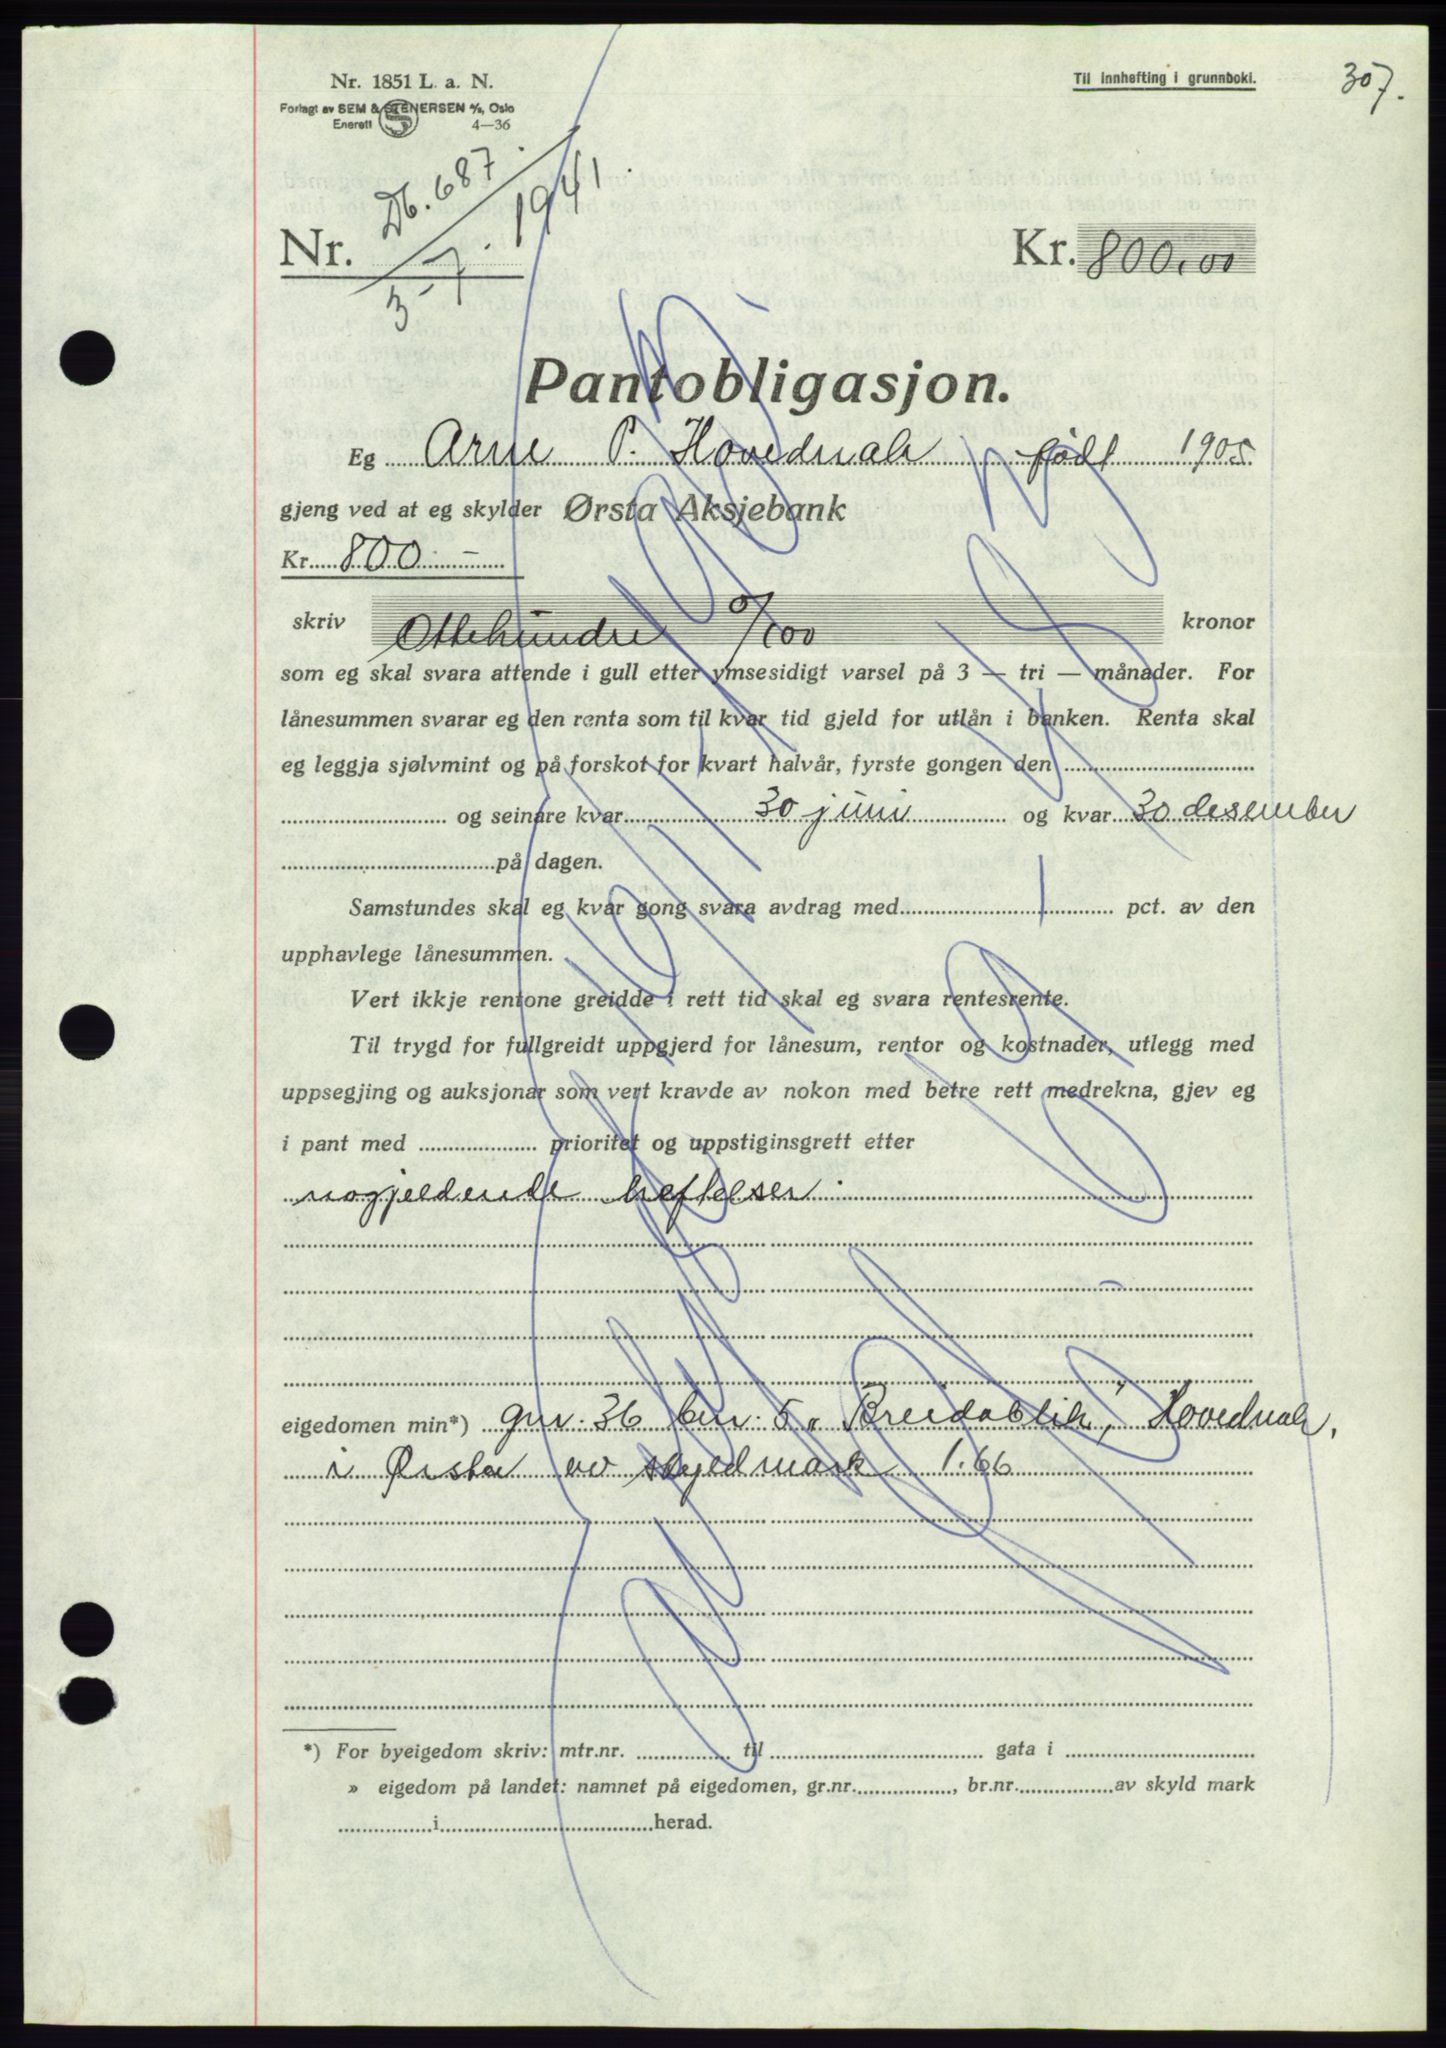 Nr. 1851 L. a. N.
Til innhefting i grunnboki.
307.
Forlagt av SEM & STENERSEN A/S, Oslo
Enerett 4—36
Db. 687
Nr. 3/7. 1941.
Kr. 800.00
Pantobligasjon.
Eg Arne P. Hovednak født 1905
gjeng ved at eg skylder Ørsta Aksjebank
Kr. 800.—
skriv Ottehundre 0/100 kronor
som eg skal svara attende i gull etter ymsesidigt varsel på 3 — tri — månader. For
lånesummen svarar eg den renta som til kvar tid gjeld for utlån i banken. Renta skal
eg leggja sjølvmint og på forskot for kvart halvår, fyrste gongen den
og seinare kvar 30 juni og kvar 30 desember
på dagen.
Samstundes skal eg kvar gong svara avdrag med pct. av den
upphavlege lånesummen.
Vert ikkje rentone greidde i rett tid skal eg svara rentesrente.
Til trygd for fullgreidt uppgjerd for lånesum, rentor og kostnader, utlegg med
uppsegjing og auksjonar som vert kravde av nokon med betre rett medrekna, gjev eg
i pant med prioritet og uppstiginsgrett etter
nogjeldende heftelser.
eigedomen min*) gnr. 36 bnr. 5 „Breidablik", Hovednak,
i Ørsta av skyldmark 1.66
*) For byeigedom skriv: mtr.nr. til gata i
» eigedom på landet: namnet på eigedomen, gr.nr. , br.nr. av skyld mark
i herad.